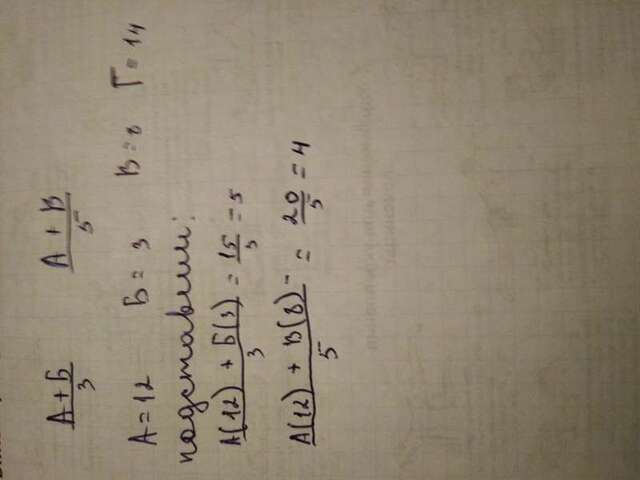 А+Б / 3 А + В / 5
А = 12 Б = 3 В = 8 Г = 14
подставим:
А(12) + Б(3) / 3 = 15 / 3 = 5
А(12) + В(8) / 5 = 20 / 5 = 4